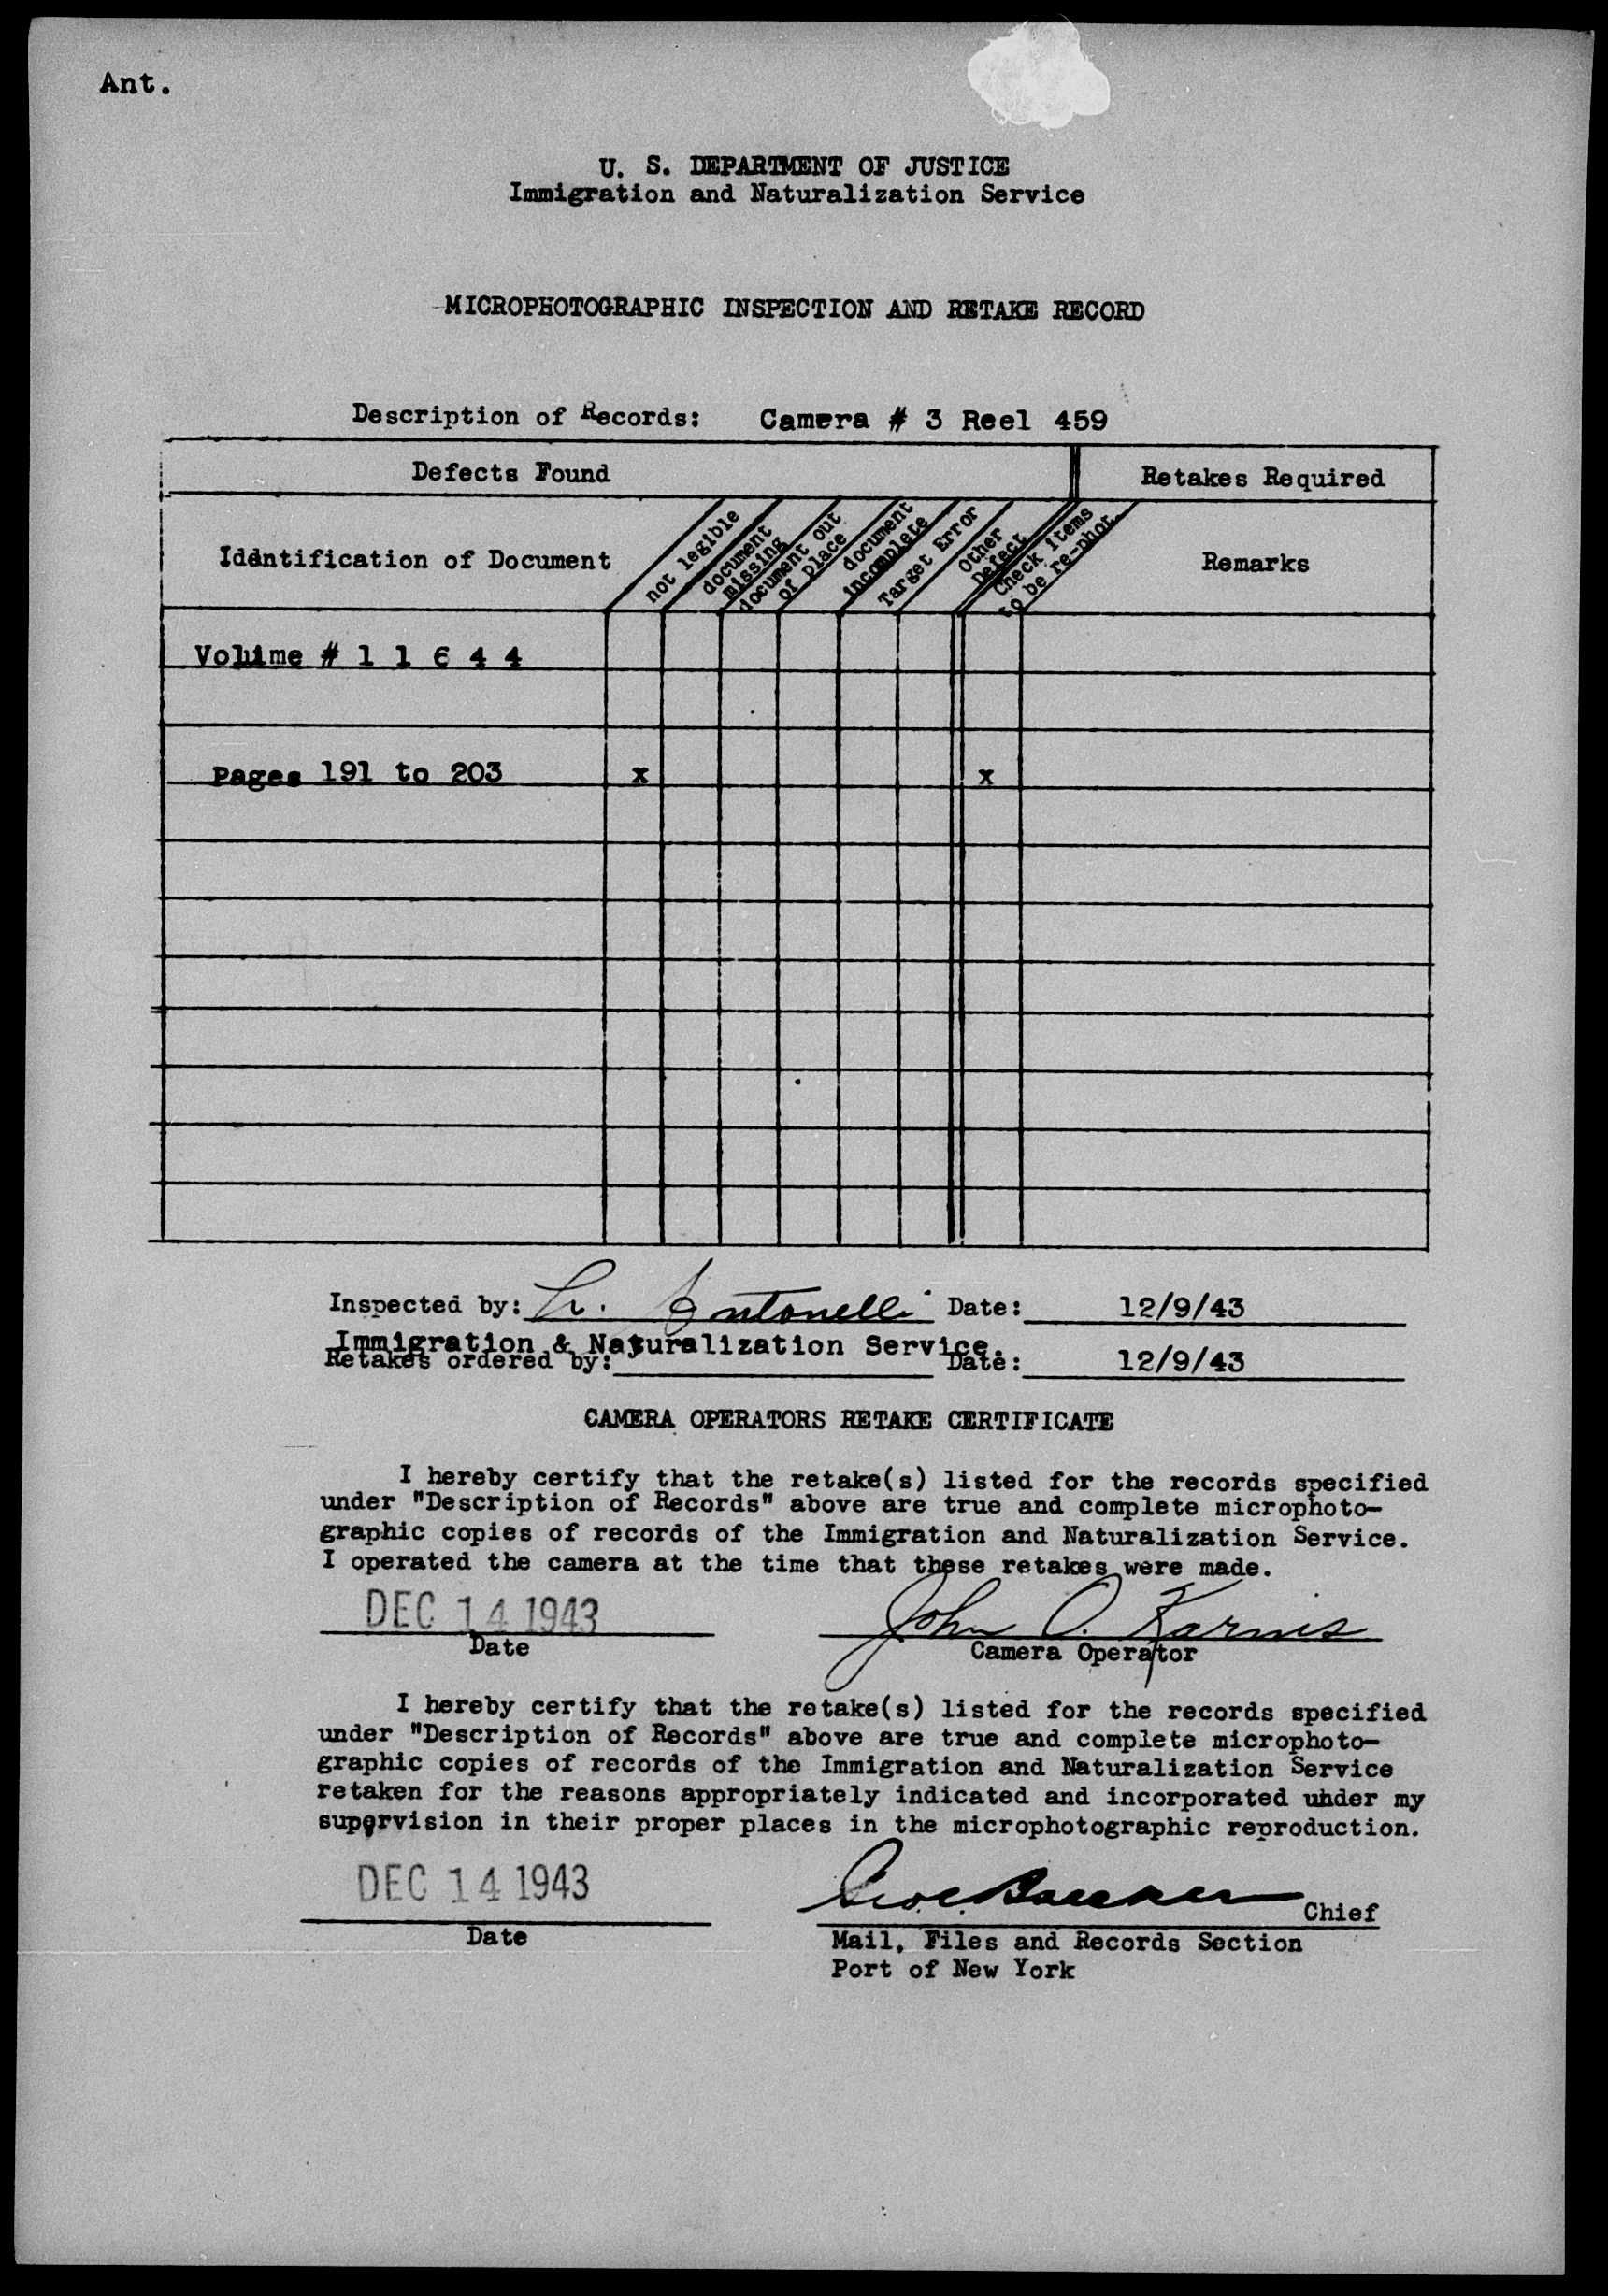 Ant.
U. S. DEPARTMENT OF JUSTICE
Immigration and Naturalization Service
MICROPHOTOGRAPHIC INSPECTION AND RETAKE RECORD
Description of Records: Camera # 3 Reel 459
Defects Found
Retakes Required
Identification of Document
not legible
document
missing
document out
of place
document
incomplete
Target Error
Other
Defect
Check items
to be re-phot.
Remarks
Volume # 1 1 6 4 4
Pages 191 to 203 x x
Inspected by: L. Antonelli Date: 12/9/43
Immigration & Naturalization Service.
Retakes ordered by: Date: 12/9/43
CAMERA OPERATORS RETAKE CERTIFICATE
I hereby certify that the retake(s) listed for the records specified
under "Description of Records" above are true and complete microphoto-
graphic copies of records of the Immigration and Naturalization Service.
I operated the camera at the time that these retakes were made.
DEC 14 1943 John O.
Date Camera Operator
I hereby certify that the retake(s) listed for the records specified
under "Description of Records" above are true and complete microphoto-
graphic copies of records of the Immigration and Naturalization Service
retaken for the reasons appropriately indicated and incorporated under my
supervision in their proper places in the microphotographic reproduction.
DEC 14 1943
Chief
Date Mail, Files and Records Section
Port of New York